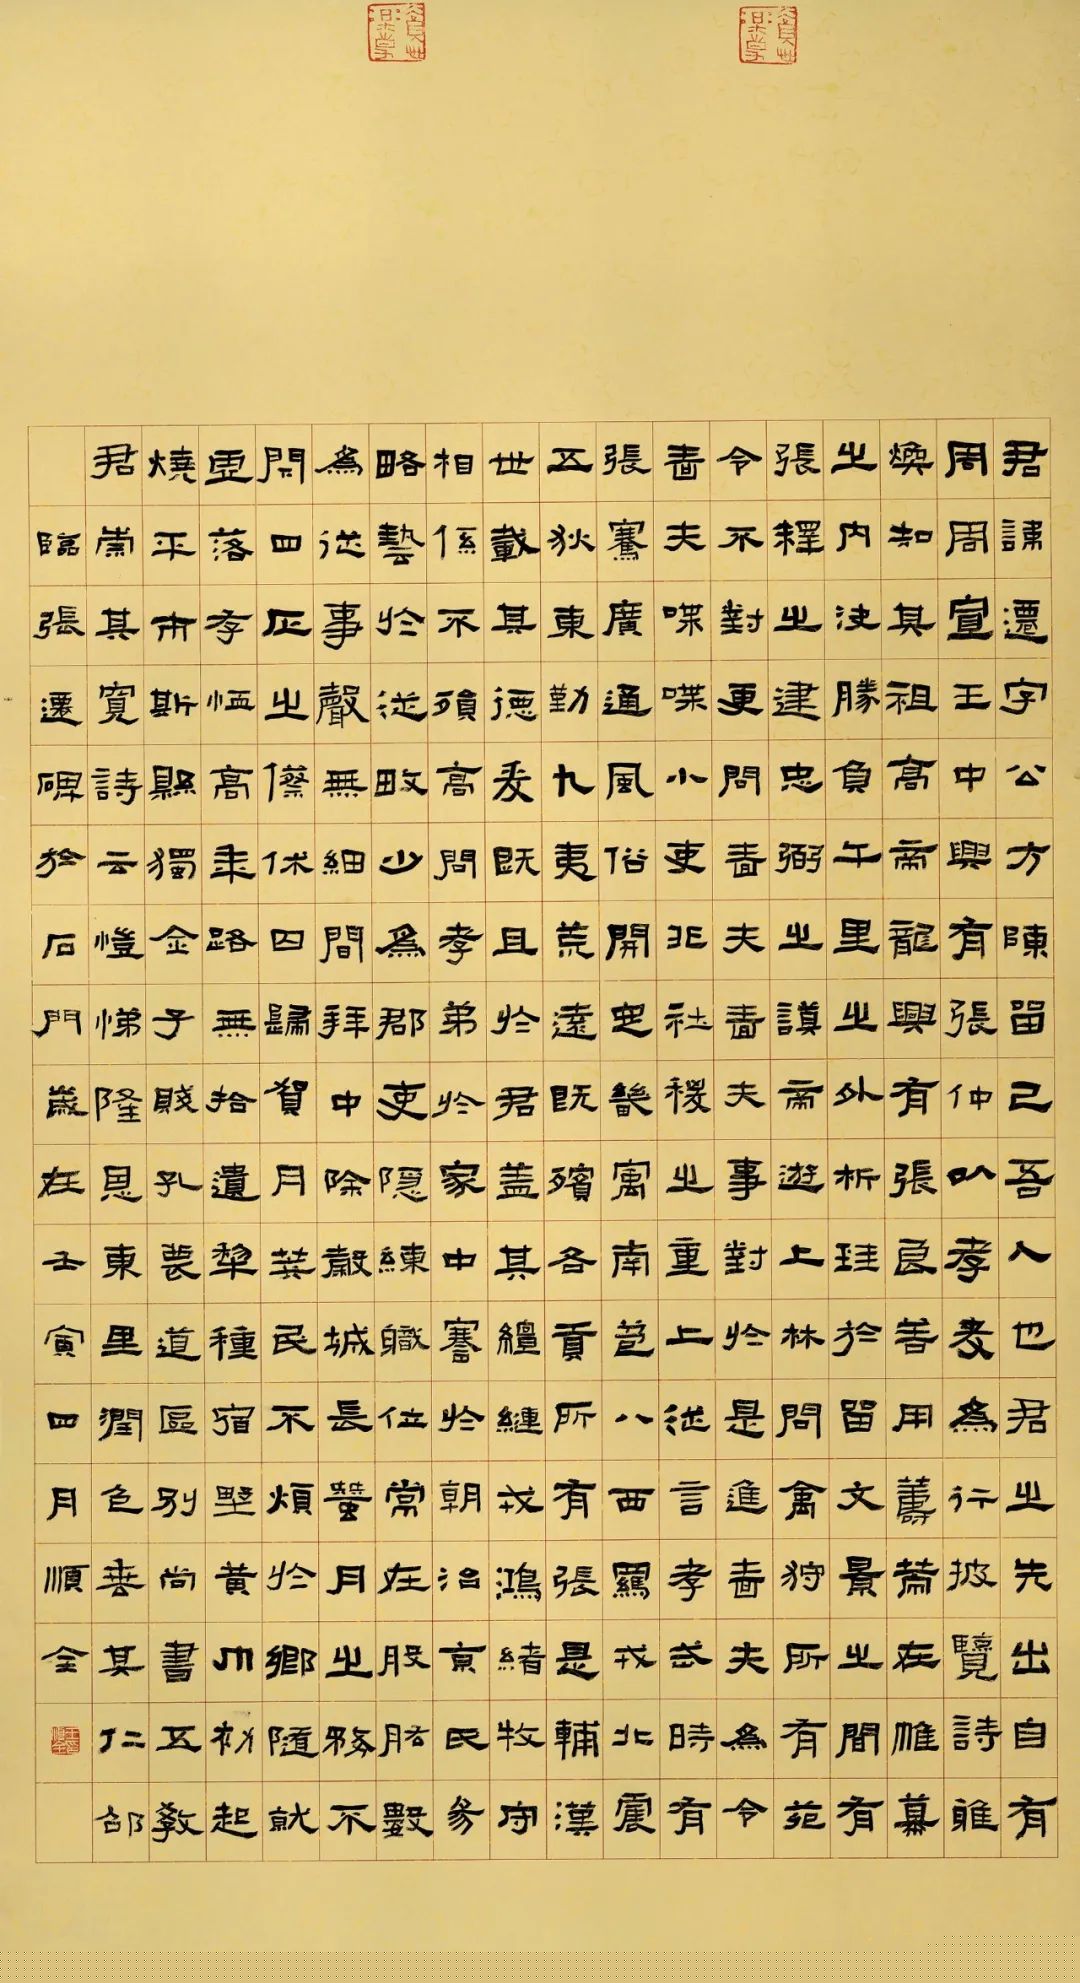 君諱遷字公方陳留己吾人也君之先出自有
周周宣王中興有張仲以孝友為行披覽詩雅
煥知其祖高帝龍興有張良善用籌策在帷幕
之內決勝負千里之外析珪於留文景之間有
張釋之建忠弼之謨帝遊上林問禽狩所有苑
令不對更問嗇夫嗇夫事對於是進嗇夫為令
嗇夫喋喋小吏非社稷之重上從言孝武時有
張騫廣通風俗開定畿寓南苞八西羈戎北震
五狄東勤九夷荒遠既殯各貢所有張是輔漢
世載其德爰既且於君蓋其繵縺戎鴻緒牧守
相係不殞高問孝弟於家中謇於朝治京氏易
略藝於從畋少為郡吏隱練職位常在股肱數
為從事聲無細間拜中除穀城長蠶月之務不
閉四正之傺休囚歸賀月筭民不煩於鄉隨就
虛落存恤高年路無拾遺犁種宿野黃巾初起
燒平市斯縣獨全子賤孔蔑道區別尚書五教
君崇其寬詩云愷悌隆恩東里潤色垂其仁邵
臨張遷碑於石門歲在壬寅四月順全